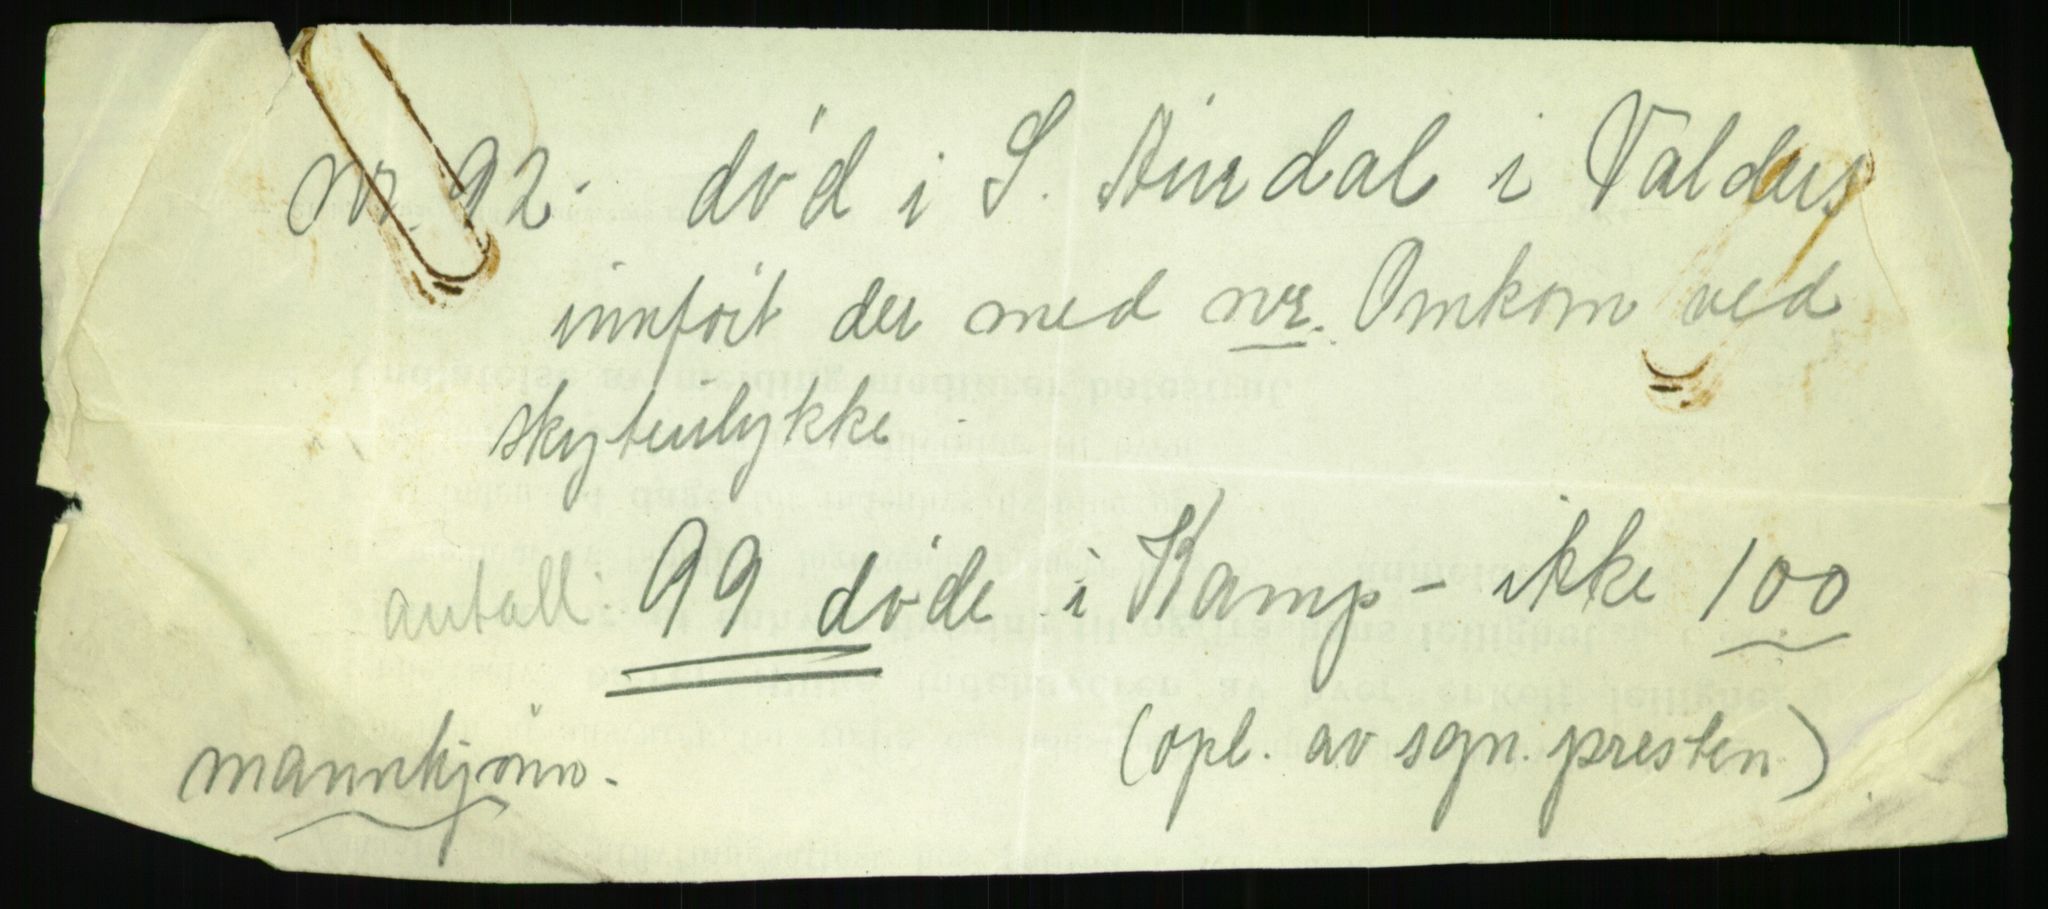 nr. 92. død i S. Aurdal i Valdres
innført der med nr. Omkom ved
skyteulykke
antall: 99 døde i Kamp – ikke 100
mannkjønn. (opl. av sgn. presten)